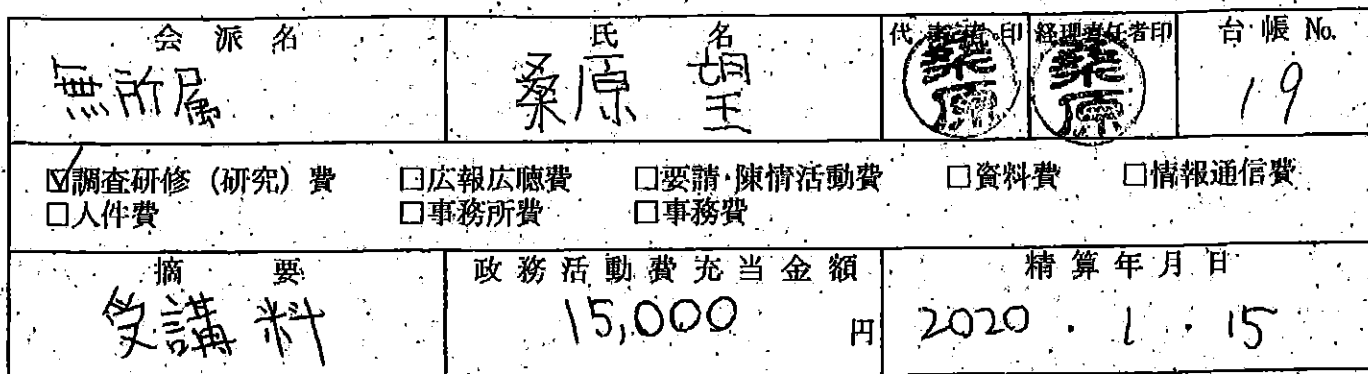 会派名 氏名 代表者印 経理責任者印 台帳 No.
無所属 桑原 望 桑原 桑原 19
☑調査研修（研究）費 □広報広聴費 □要請・陳情活動費 □資料費 □情報通信費
□人件費 □事務所費 □事務費
摘要 政務活動費充当金額 精算年月日
受講料 15,000 円 2020 . 1 . 15